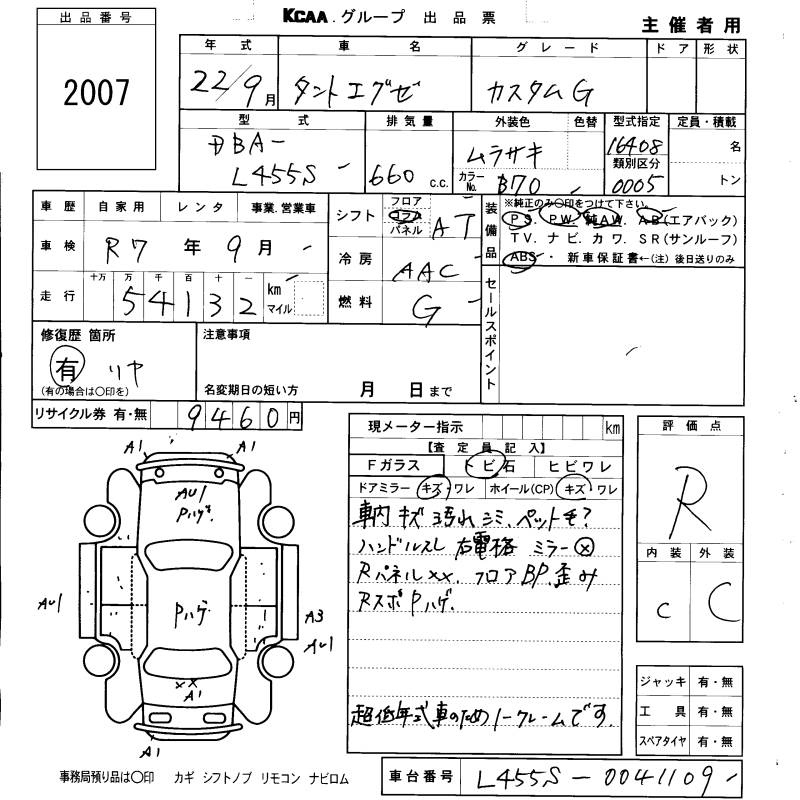 KCAA.グループ 出品票
主催者用
出品番号
2007
年式 車名 グレード ドア 形状
22/9月 タントエグゼ カスタムG
型式 排気量 外装色 色替 型式指定 定員・積載
DBA- 660 c.c. ムラサキ 16408 名
L455S カラーNo. B70 類別区分 0005 トン
車歴 自家用 レンタ 事業.営業車
車検 R7年9月
走行 十万 万 千 百 十 一 km マイル
54132
シフト フロア コラム パネル AT
冷房 AAC
燃料 G
装備品 ※純正のみ〇印をつけて下さい。
PS. PW. 純AW. AB(エアバック)
TV. ナビ. カワ. SR(サンルーフ)
ABS・ 新車保証書←(注) 後日送りのみ
セールスポイント
修復歴 箇所
有 リヤ
(有の場合は〇印を)
注意事項
名変期日の短い方 月 日まで
リサイクル券 有・無 9460円
現メーター指示 km
【査定員記入】
Fガラス トビ石 ヒビワレ
ドアミラー キズ ワレ ホイール(CP) キズ ワレ
車内 キズ 汚れ シミ、ペットモ?
ハンドルスレ 右電格 ミラー ⓧ
Rパネルxx. フロアBP.歪み
RスポPハゲ.
超低年式車のためノークレームです.
評価点
R
内装 外装
C C
ジャッキ 有・無
工具 有・無
スペアタイヤ 有・無
A1 A1
AU1
Pハゲ.
AU1 Pハゲ A3
AU1
XX
A1
A1
事務局預り品は〇印 カギ シフトノブ リモコン ナビロム
車台番号 L455S-0041109